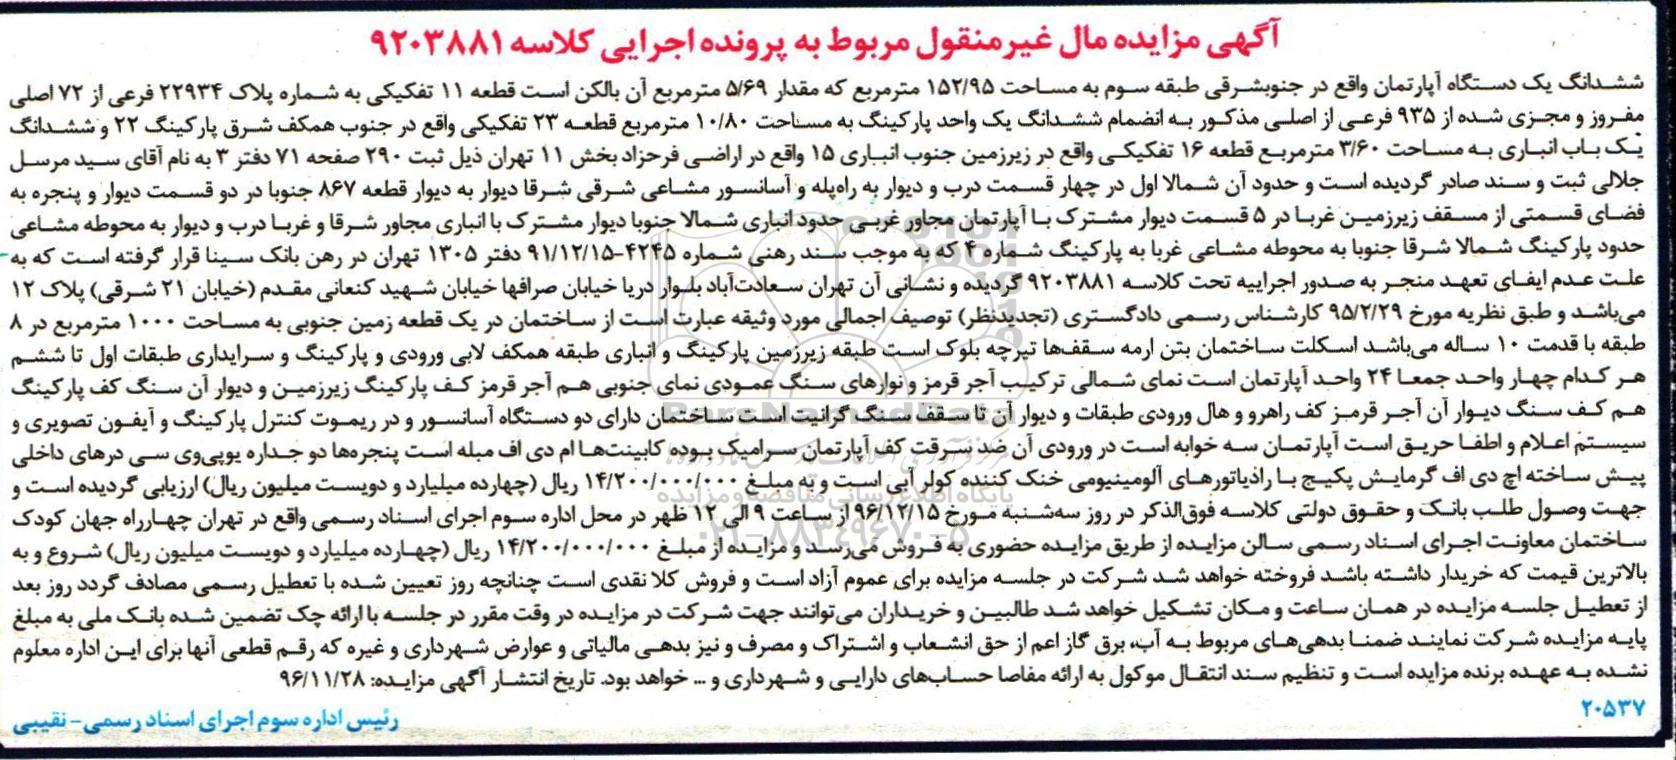 آگهی مزایده مال غیرمنقول مربوط به پرونده اجرایی کلاسه ۹۲۰۳۸۸۱
ششدانگ یک دستگاه آپارتمان واقع در جنوبشرقی طبقه سوم به مساحت ۱۵۲/۹۵ مترمربع که مقدار ۵/۶۹ مترمربع آن بالکن است قطعه ۱۱ تفکیکی به شماره پلاک ۲۲۹۳۴ فرعی از ۷۲ اصلی
مفروز و مجزی شده از ۹۳۵ فرعی از اصلی مذکور به انضمام ششدانگ یک واحد پارکینگ به مساحت ۱۰/۸۰ مترمربع قطعه ۲۳ تفکیکی واقع در جنوب همکف شرق پارکینگ ۲۲ و ششدانگ
یک باب انباری به مساحت ۳/۶۰ مترمربع قطعه ۱۶ تفکیکی واقع در زیرزمین جنوب انباری ۱۵ واقع در اراضی فرحزاد بخش ۱۱ تهران ذیل ثبت ۲۹۰ صفحه ۷۱ دفتر ۳ به نام آقای سید مرسل
جلالی ثبت و سند صادر گردیده است و حدود آن شمالا اول در چهار قسمت درب و دیوار به راه‌پله و آسانسور مشاعی شرقی شرقا دیوار به دیوار قطعه ۸۶۷ جنوبا در دو قسمت دیوار و پنجره به
فضای قسمتی از مسقف زیرزمین غربا در ۵ قسمت دیوار مشترک با آپارتمان مجاور غربی حدود انباری شمالا جنوبا دیوار مشترک با انباری مجاور شرقا و غربا درب و دیوار به محوطه مشاعی
حدود پارکینگ شمالا شرقا جنوبا به محوطه مشاعی غربا به پارکینگ شماره ۴ که به موجب سند رهنی شماره ۴۲۴۵-۹۱/۱۲/۱۵ دفتر ۱۳۰۵ تهران در رهن بانک سینا قرار گرفته است که به
علت عدم ایفای تعهد منجر به صدور اجراییه تحت کلاسه ۹۲۰۳۸۸۱ گردیده و نشانی آن تهران سعادت‌آباد بلوار دریا خیابان صرافها خیابان شهید کنعانی مقدم (خیابان ۲۱ شرقی) پلاک ۱۲
می‌باشد و طبق نظریه مورخ ۹۵/۲/۲۹ کارشناس رسمی دادگستری (تجدیدنظر) توصیف اجمالی مورد وثیقه عبارت است از ساختمان در یک قطعه زمین جنوبی به مساحت ۱۰۰۰ مترمربع در ۸
طبقه با قدمت ۱۰ ساله می‌باشد اسکلت ساختمان بتن ارمه سقف‌ها تیرچه بلوک است طبقه زیرزمین پارکینگ و انباری طبقه همکف لابی ورودی و پارکینگ و سرایداری طبقات اول تا ششم
هر کدام چهار واحد جمعا ۲۴ واحد آپارتمان است نمای شمالی ترکیب آجر قرمز و نوارهای سنگ عمودی نمای جنوبی هم آجر قرمز کف پارکینگ زیرزمین و دیوار آن سنگ کف پارکینگ
هم کف سنگ دیوار آن آجر قرمز کف راهرو و هال ورودی طبقات و دیوار آن تا سقف سنگ گرانیت است ساختمان دارای دو دستگاه آسانسور و در ریموت کنترل پارکینگ و آیفون تصویری و
سیستم اعلام و اطفا حریق است آپارتمان سه خوابه است در ورودی آن ضد سرقت کف آپارتمان سرامیک بوده کابینت‌ها ام دی اف مبله است پنجره‌ها دو جداره یوپی‌وی سی درهای داخلی
پیش ساخته اچ دی اف گرمایش پکیج با رادیاتورهای آلومینیومی خنک کننده کولر آبی است و به مبلغ ۱۴/۲۰۰/۰۰۰/۰۰۰ ریال (چهارده میلیارد و دویست میلیون ریال) ارزیابی گردیده است و
جهت وصول طلب بانک و حقوق دولتی کلاسه فوق‌الذکر در روز سه‌شنبه مورخ ۹۶/۱۲/۱۵ از ساعت ۹ الی ۱۲ ظهر در محل اداره سوم اجرای اسناد رسمی واقع در تهران چهارراه جهان کودک
ساختمان معاونت اجرای اسناد رسمی سالن مزایده از طریق مزایده حضوری به فروش می‌رسد و مزایده از مبلغ ۱۴/۲۰۰/۰۰۰/۰۰۰ ریال (چهارده میلیارد و دویست میلیون ریال) شروع و به
بالاترین قیمت که خریدار داشته باشد فروخته خواهد شد شرکت در جلسه مزایده برای عموم آزاد است و فروش کلا نقدی است چنانچه روز تعیین شده با تعطیل رسمی مصادف گردد روز بعد
از تعطیل جلسه مزایده در همان ساعت و مکان تشکیل خواهد شد طالبین و خریداران می‌توانند جهت شرکت در مزایده در وقت مقرر در جلسه با ارائه چک تضمین شده بانک ملی به مبلغ
پایه مزایده شرکت نمایند ضمنا بدهی‌های مربوط به آب، برق گاز اعم از حق انشعاب و اشتراک و مصرف و نیز بدهی مالیاتی و عوارض شهرداری و غیره که رقم قطعی آنها برای این اداره معلوم
نشده به عهده برنده مزایده است و تنظیم سند انتقال موکول به ارائه مفاصا حساب‌های دارایی و شهرداری و ... خواهد بود. تاریخ انتشار آگهی مزایده: ۹۶/۱۱/۲۸
۲۰۵۳۷
رئیس اداره سوم اجرای اسناد رسمی- نقیبی
ParsNamadData
پایگاه اطلاع رسانی مناقصه و مزایده
۰۲۱-۸۸۳۴۹۶۷۰-۵